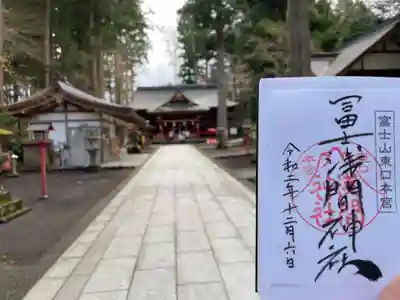 富士山東口本宮
冨士浅間神社
令和二年十二月六日